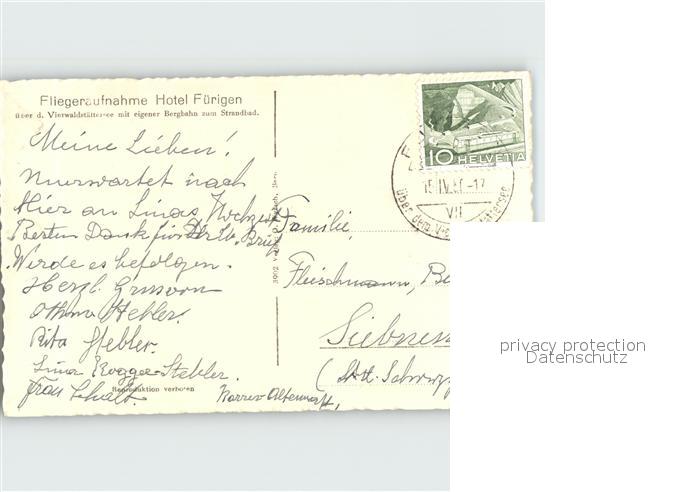 Fliegeraufnahme Hotel Fürigen
über d. Vierwaldstättersee mit eigener Bergbahn zum Strandbad.
Meine Lieben!
Unerwartet nach
Hier an Linas Hochzeit
Besten Dank für Ihr lb. Brief
Werde es befolgen.
Herzl. Grüsse von
Othmar Stebler.
Rita Stebler.
Lina Rogger-Stebler.
Frau
Reproduktion verboten
3902
10 HELVETIA
15.IV. -17
VII
über dem Vie
Familie,
Fleischmann, Be
Siebnen
(Kt. Schwyz
privacy protection
Datenschutz